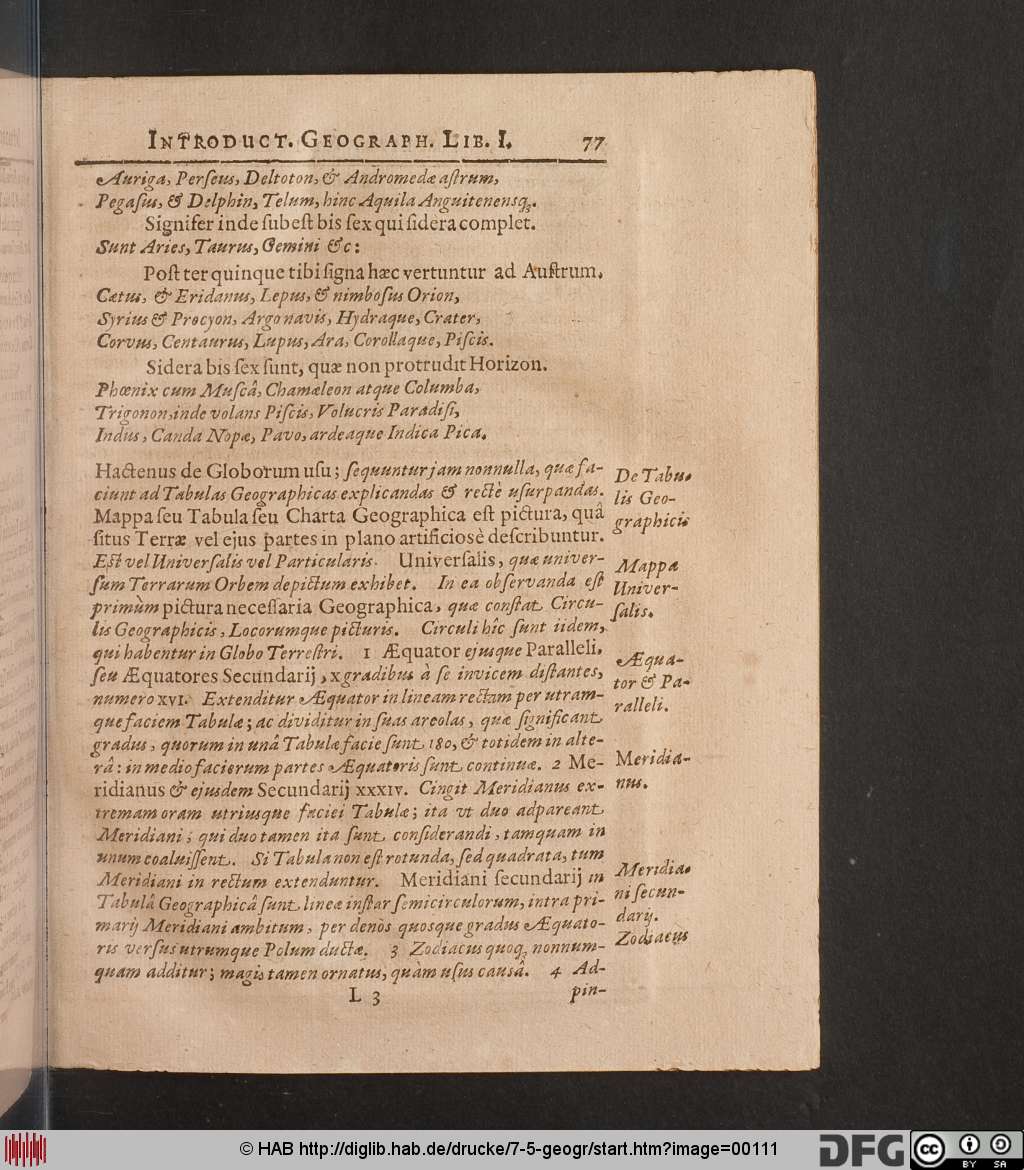 INTRODUCT. GEOGRAPH. LIB. I. 77
Auriga, Perſeus, Deltoton, & Andromedæ aſtrum,
Pegaſus, & Delphin, Telum, hinc Aquila Anguitenensq́;.
Signifer inde ſubeſt bis ſex qui ſidera complet.
Sunt Aries, Taurus, Gemini &c:
Poſt ter quinque tibi ſigna hæc vertuntur ad Auſtrum,
Cætus, & Eridanus, Lepus, & nimboſus Orion,
Syrius & Procyon, Argo navis, Hydraque, Crater,
Corvus, Centaurus, Lupus, Ara, Corollaque, Piſcis.
Sidera bis ſex ſunt, quæ non protrudit Horizon.
Phœnix cum Muſcâ, Chamæleon atque Columba,
Trigonon, inde volans Piſcis, Volucris Paradiſi,
Indus, Canda Nopæ, Pavo, ardeaque Indica Pica.
Hactenus de Globorum uſu; ſequuntur jam nonnulla, quæ fa-
ciunt ad Tabulas Geographicas explicandas & rectè uſurpandas.
Mappa ſeu Tabula ſeu Charta Geographica eſt pictura, quâ
ſitus Terræ vel ejus partes in plano artificiosè deſcribuntur.
Eſt vel Univerſalis vel Particularis. Univerſalis, quæ univer-
ſum Terrarum Orbem depictum exhibet. In ea obſervanda eſt
primùm pictura neceſſaria Geographica, quæ conſtat Circu-
lis Geographicis, Locorumque picturis. Circuli hîc ſunt iidem,
qui habentur in Globo Terreſtri. 1 Æquator ejusque Paralleli,
ſeu Æquatores Secundarij, x gradibus à ſe invicem diſtantes,
numero XVI. Extenditur Æquator in lineam rectam per utram-
que faciem Tabulæ; ac dividitur in ſuas areolas, quæ ſignificant
gradus, quorum in unâ Tabulæ facie ſunt 180, & totidem in alte-
râ: in medio facierum partes Æquatoris ſunt continuæ. 2 Me-
ridianus & ejusdem Secundarij XXXIV. Cingit Meridianus ex-
tremam oram utriusque faciei Tabulæ; ita vt duo adpareant
Meridiani; qui duo tamen ita ſunt conſiderandi, tamquam in
unum coaluiſſent. Si Tabula non eſt rotunda, ſed quadrata, tum
Meridiani in rectum extenduntur. Meridiani ſecundarij in
Tabulâ Geographicâ ſunt lineæ inſtar ſemicirculorum, intra pri-
marij Meridiani ambitum, per denos quosque gradus Æquato-
ris verſus utrumque Polum ductæ. 3 Zodiacus quoq́; nonnum-
quam additur; magis tamen ornatus, quàm uſus causâ. 4 Ad-
L 3 pin-
De Tabu-
lis Geo-
graphicis
Mappa
Univer-
ſalis.
Æqua-
tor & Pa-
ralleli.
Meridia-
nus.
Meridia-
ni ſecun-
darij.
Zodiacus
© HAB http://diglib.hab.de/drucke/7-5-geogr/start.htm?image=00111
DFG
cc
BY SA